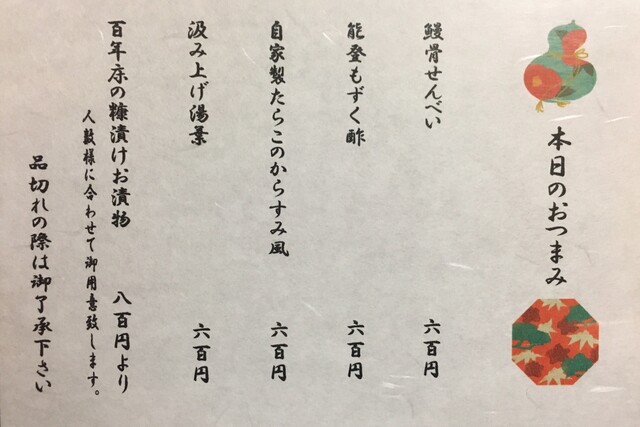 本日のおつまみ
鰻骨せんべい 六百円
能登もずく酢 六百円
自家製たらこのからすみ風 六百円
汲み上げ湯葉 六百円
百年床の糠漬けお漬物 八百円より
人数様に合わせて御用意致します。
品切れの際は御了承下さい